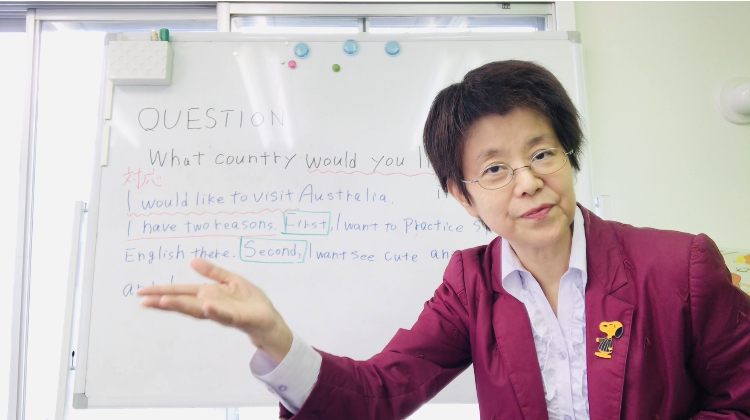 QUESTION
What country would you
対応
I would like to visit Australia.
I have two reasons. First, I want to Practice
English there. Second, I want see cute